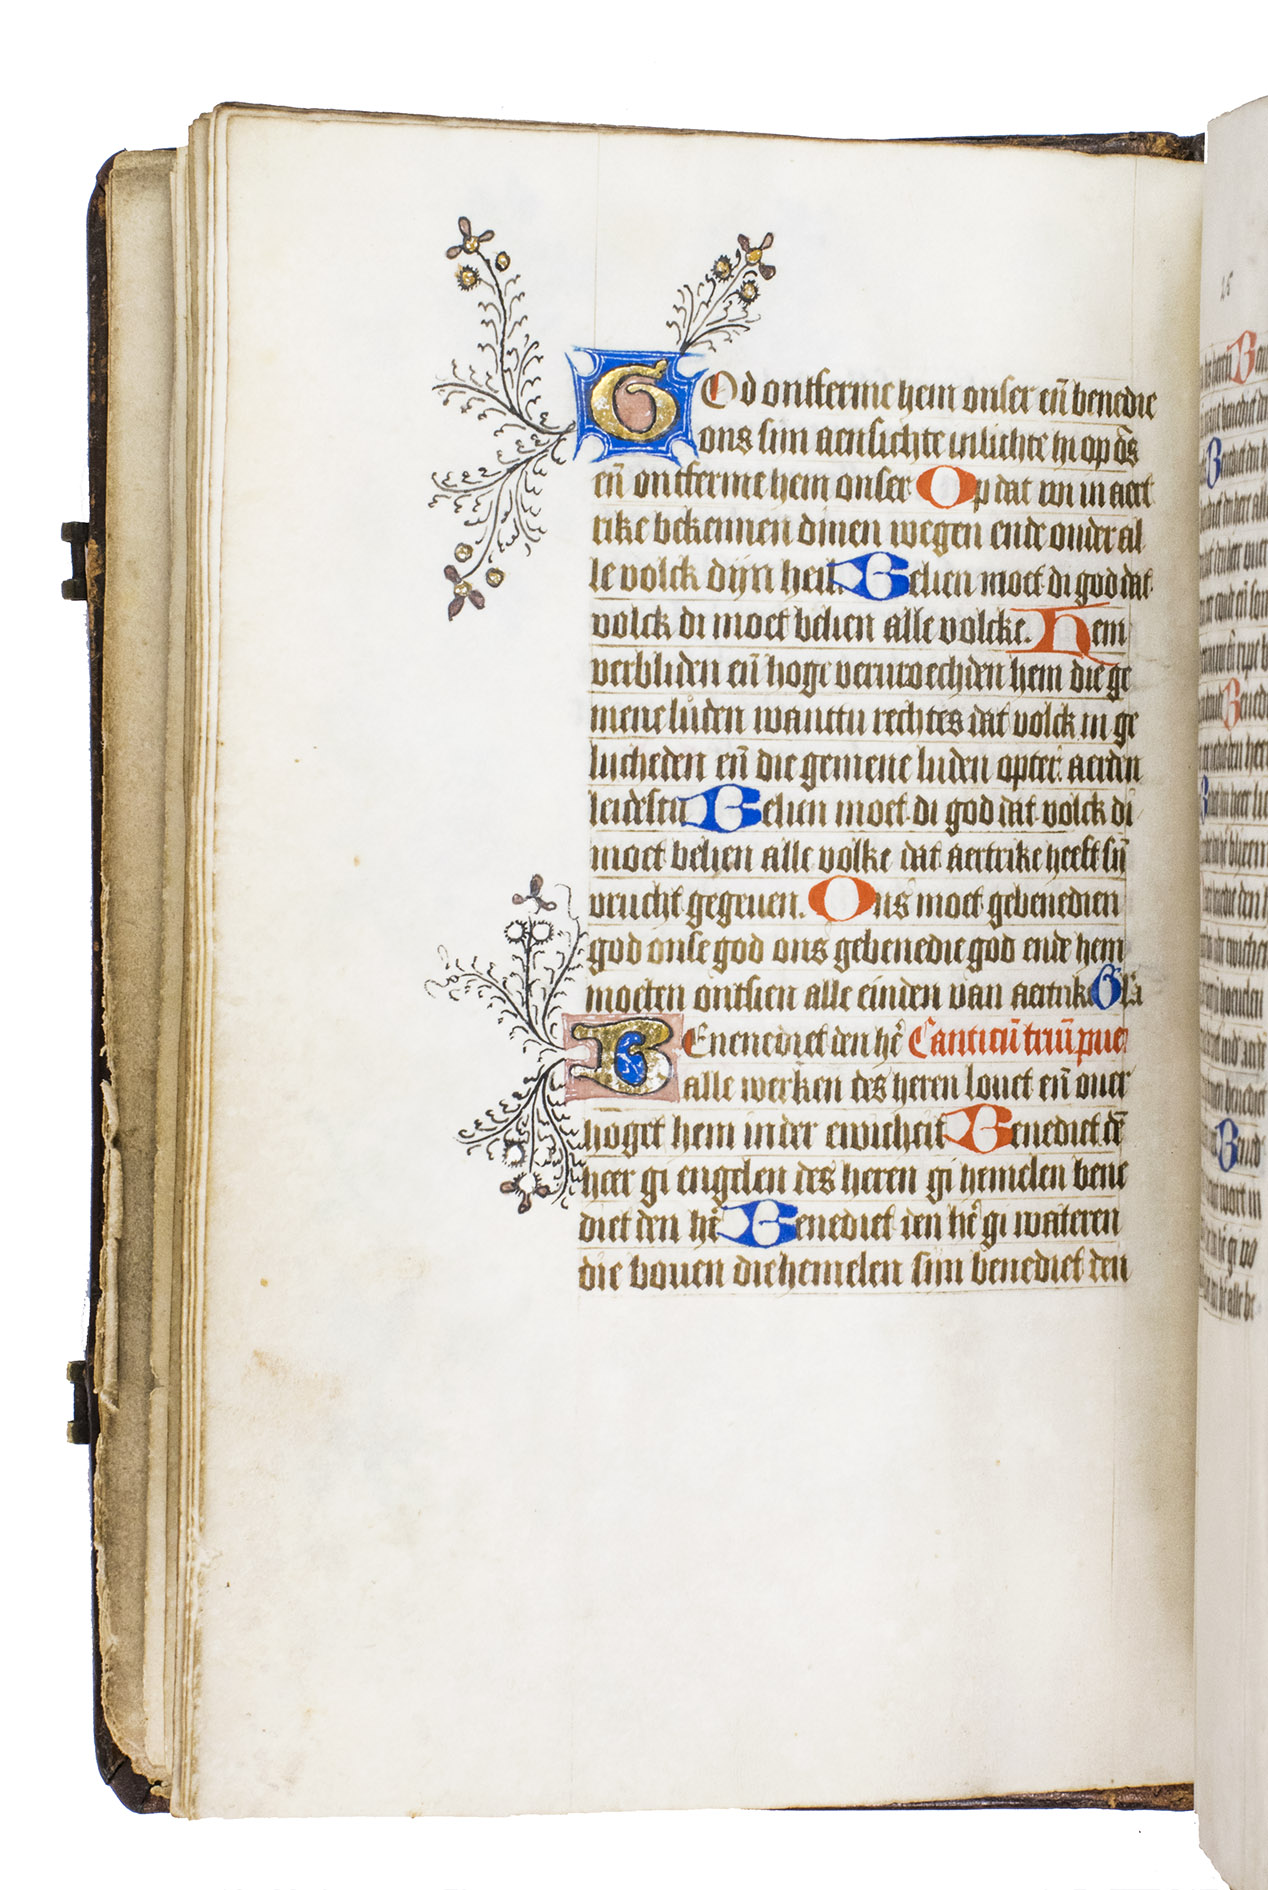 GOd ontferme hem onser en̄ benedie
ons sijn aensichte inlichte hi op ōs
en̄ ontferme hem onser Op dat wi in aert
rike bekennen dinen wegen ende onder al
le volck dijn heil. Belien moet di god dat
volck di moet belien alle volcke. Hem
verbliden en̄ hoge vervroechden hem die ge
mene luden wanttu rechtes dat volck in ge
lucheden en̄ die gemene luden opter aerden
leidestu Belien moet di god dat volck di
moet belien alle volke dat aertrike heeft sijn̄
vrucht gegeuen. Ons moet gebenedien
god onse god ons gebenedie god ende hem
moeten ontsien alle einden van aertrike Gla
BEnenediet den he᷑ Canticū triū pue
alle werken des heren louet en̄ ouer
hoget hem in der ewicheit Benediet dē
heer gi engelen des heren gi hemelen bene
diet den he᷑ Benediet den he᷑ gi wateren
die bouen die hemelen sijn benediet den